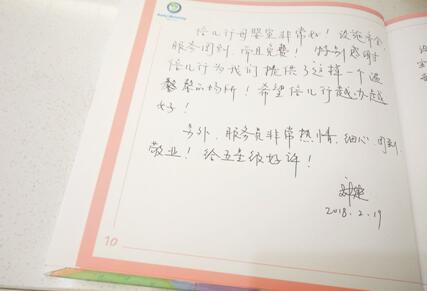 倍儿行母婴室非常好！设施齐全,
服务周到,而且免费！特别感谢
倍儿行为我们提供了这样一个温
馨的场所！希望倍儿行越办越
好！
另外,服务员非常热情、细心、周到、
敬业！给五星级好评！
2018.2.19
10